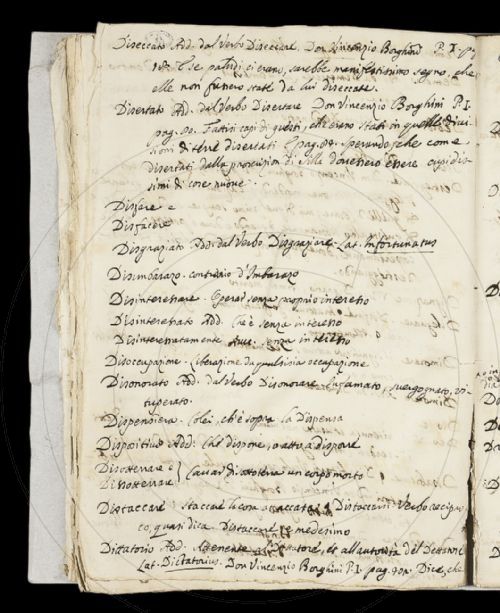 Diseccato Add. dal Verbo Diseccare. Don Vincenzio Borghini P. I. pag.
E se paludi ci erano, sarebbe manifestissimo segno, che
elle non fussero state da lui diseccate.
Disertato Ad. dal Verbo Disertare Don Vincenzio Borghini P. I.
pag. 90. Fattivi capi di questi, che erano stati in quelle divi
sioni di terre disertati E pag. sperando, che come
disertati dalla di Silla dovessero essere cupidis
simi di cose nuove.
Disfare e
Disfacere
Disgraziato Add. dal Verbo Disgraziare. Lat. Infortunatus
Disimbarazo. contrario d'Imbarazo
Disinteressare. Operar senza proprio interesso
Disinteressato Add. Ch'è senza interesso
Disinteressatamente Avv. senza interesso
Disoccupazione. Liberazione da qualsisia occupazione
Disonorato Ad. dal Verbo Disonorare. Infamato, svergognato, vi
tuperato.
Dispensiera. Colei, ch'è sopra la Dispensa
Dispositivo Add. Che dispone, o atto a disporre
Disotterrare e
Disotterrare } Cavar di sotterra un corpo morto
Distaccare. Staccar la cosa attaccata. Distaccarsi Verbo recipro
co, quasi dica Distaccare se medesimo
Dittatorio Add. Attenente a Dittatore, et all'autorità del Dittatore
Lat. Dictatorius. Don Vincenzio Borghini P. I. pag. Dice, che